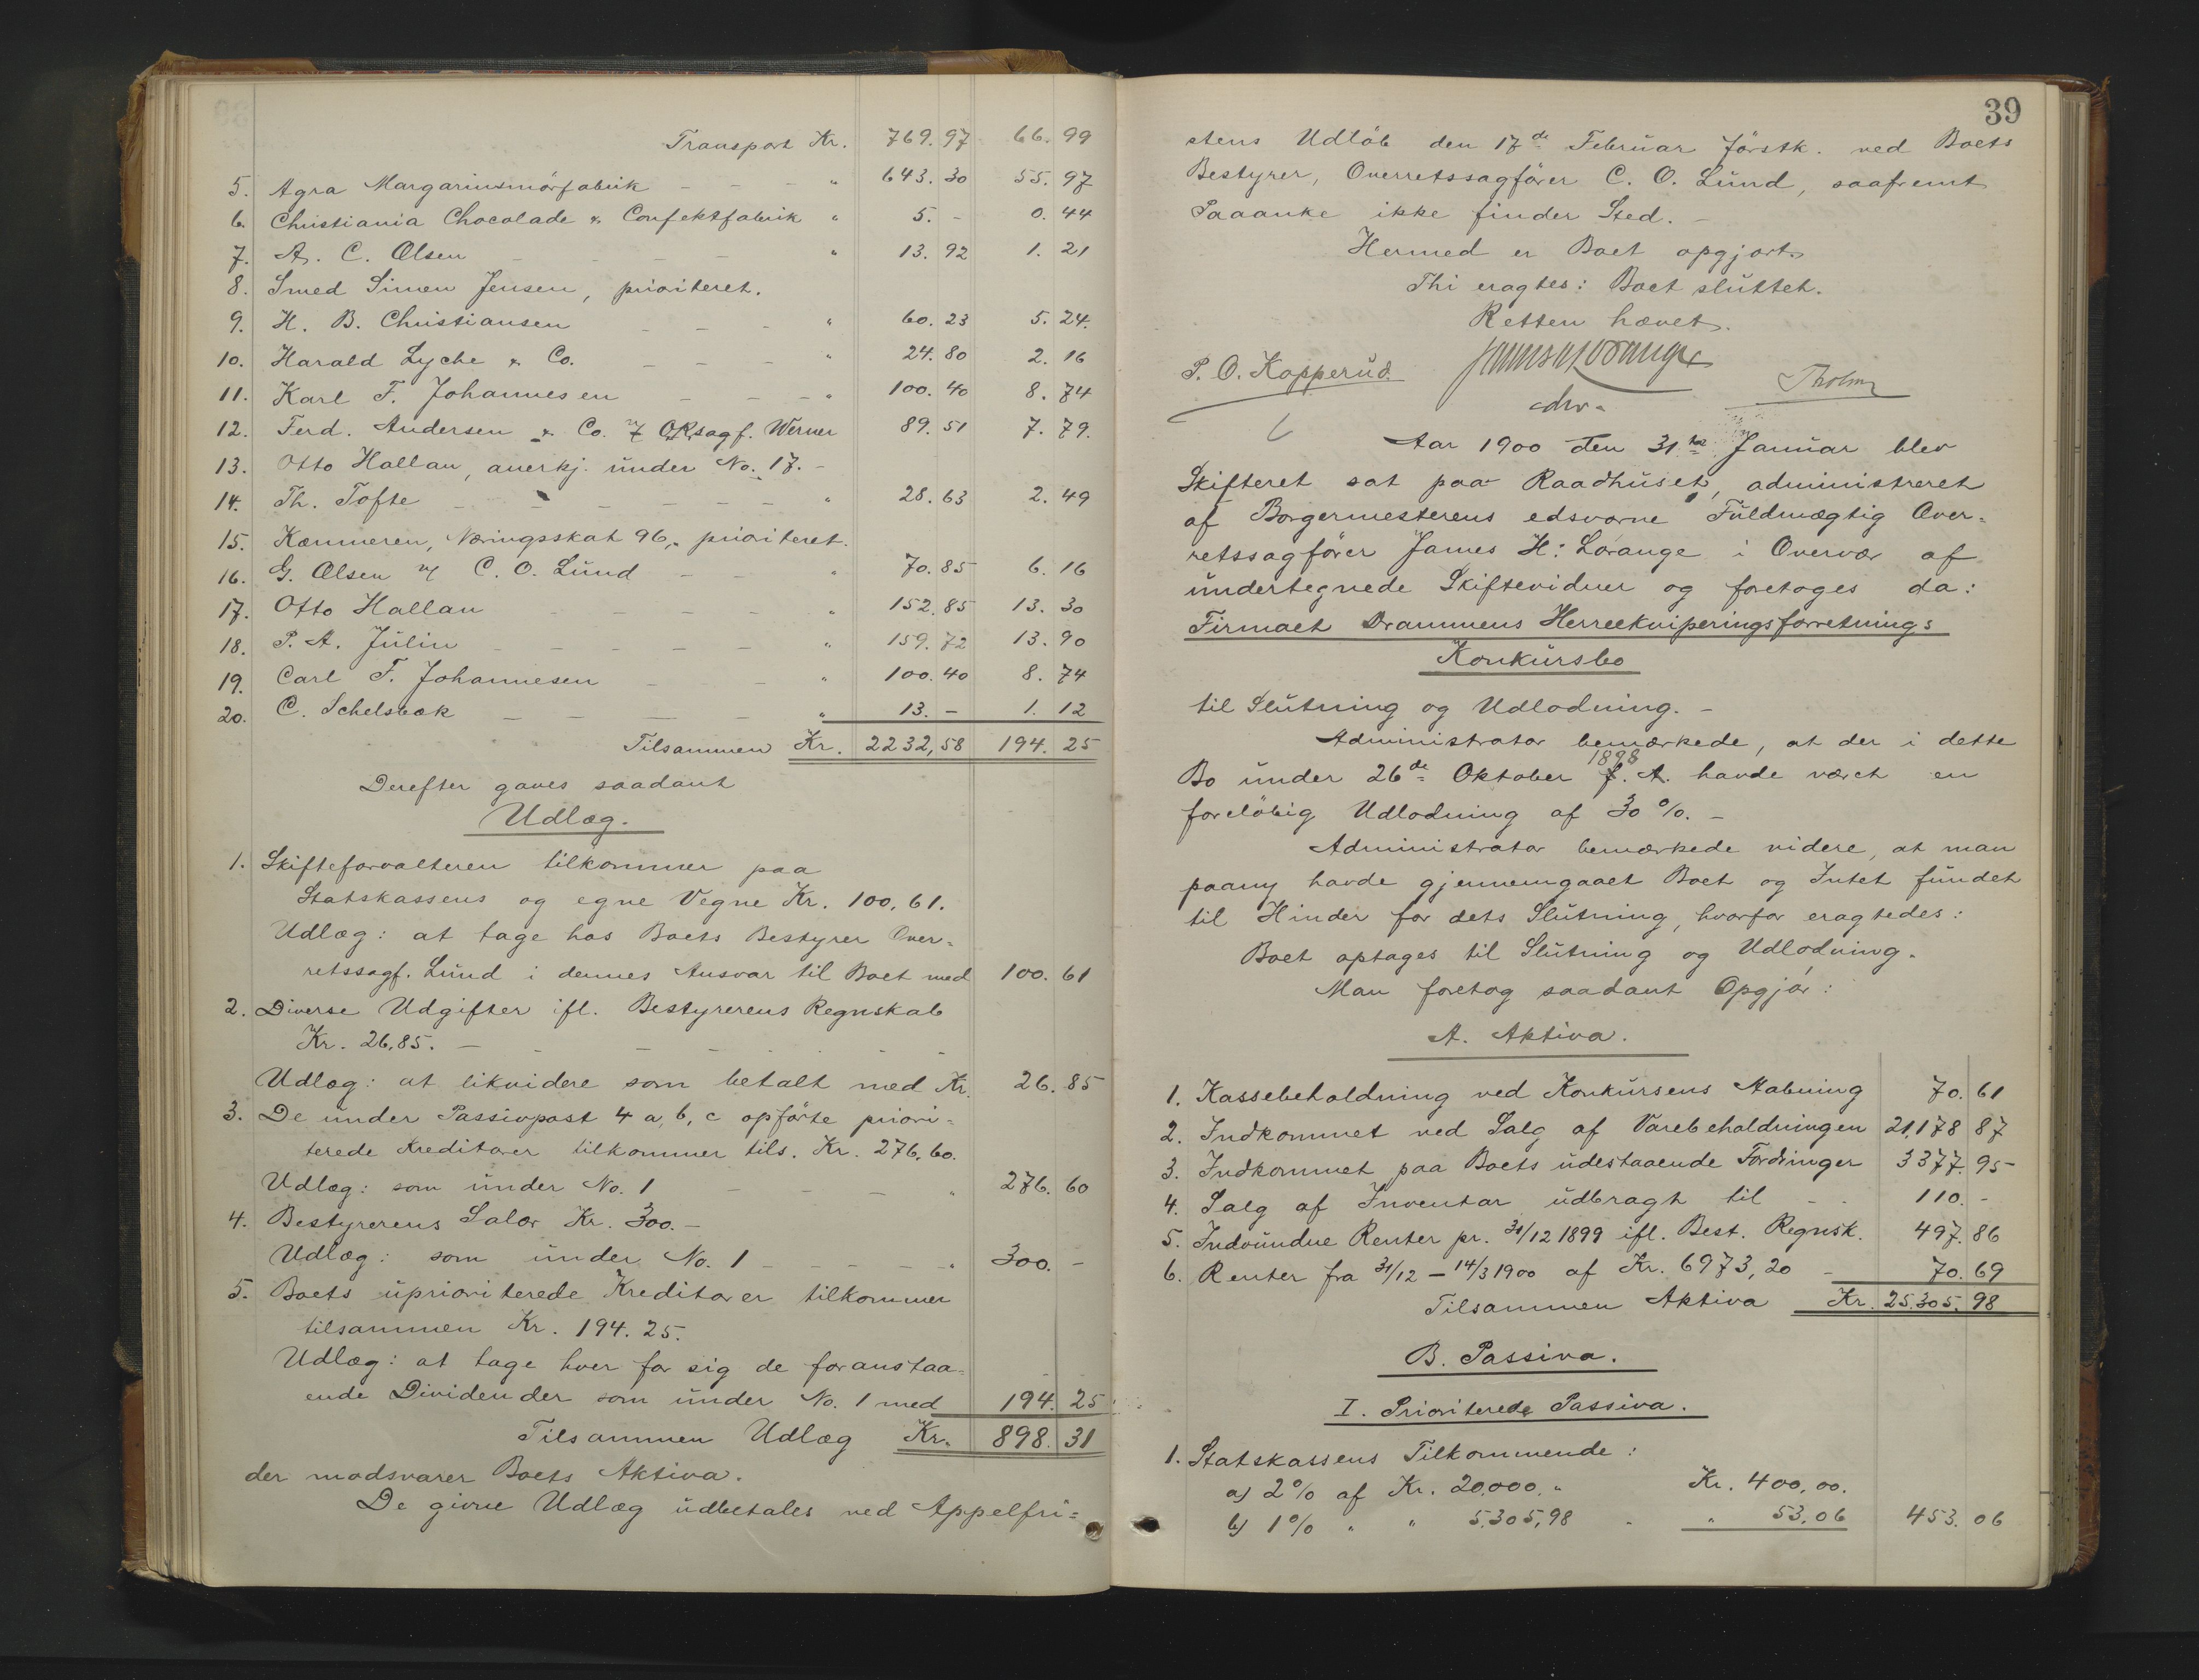 Transport Kr. 769.97 66.99
5. Agra Margarinsmörfabrik - - - " 643.30 55.97
6. Christiania Chocolade & Confektfabrik " 5. - 0.44
7. A. C. Olsen - - - - " 13.92 1.21
8. Smed Simen Jensen, prioriteret.
9. H. B. Christiansen - - - " 60.23 5.24.
10. Harald Lyche & Co. - - - " 24.80 2.16
11. Karl F. Johannesen - - - " 100.40 8.74
12. Ferd. Andersen & Co. v/ O.R.sagf. Werner 89.51 7.79.
13. Otto Hallan, anerkj. under No. 17. -
14. Th. Tofte - - - - - - " 28.63 2.49
15. Kæmneren, Næringsskat 96, prioriteret.
16. G. Olsen v/ C. O. Lund - - " 70.85 6.16
17. Otto Hallan - - - - " 152.85 13.30
18. P. A. Julin - - - - - " 159.72 13.90
19. Carl F. Johannesen - - - " 100.40 8.74
20. C. Schelsbæk - - - - " 13. - 1.12
Tilsammen Kr. 2232,58 194.25
Derefter gaves saadant
Udlæg.
1. Skifteforvalteren tilkommer paa
Statskassens og egne Vegne Kr. 100,61.
Udlæg: at tage hos Boets Bestyrer Over-
retssagf. Lund i dennes Ansvar til Boet med 100.61
2. Diverse Udgifter ifl. Bestyrerens Regnskab
Kr. 26,85. - - - - - - -
Udlæg: at likvidere som betalt med Kr. 26.85
3. De under Passivpost 4 a, b, c opförte priori-
terede Kreditorer tilkommer tils. Kr. 276,60.
Udlæg: som under No. 1 - - - " 276.60
4. Bestyrerens Salær Kr. 300. -
Udlæg: som under No. 1 - - - - - " 300. -
5. Boets uprioriterede Kreditorer tilkommer
tilsammen Kr. 194.25.
Udlæg: at tage hver for sig de foranstaa-
ende Dividender som under No. 1 med 194.25
Tilsammen Udlæg Kr. 898.31
der modsvarer Boets Aktiva.
De givne Udlæg udbetales ved Appelfri-
39
stens Udlöb den 17de Februar förstk. ved Boets
Bestyrer, Overretssagförer C. O. Lund, saafremt
Paaanke ikke finder Sted. -
Hermed er Boet opgjort.
Thi eragtes: Boet sluttet.
Retten hævet.
P. O. Kopperud. James H Lorange Tholm
edsv.
Aar 1900 den 31te Januar blev
Skifteret sat paa Raadhuset, administreret
af Borgermesterens edsvorne Fuldmægtig Over-
retssagförer James H. Lorange i Overvær af
undertegnede Skiftevidner og foretoges da:
Firmaet Drammens Herreekviperingsforretnings
Konkursbo
til Slutning og Udlodning. -
Administrator bemærkede, at der i dette
1898
Bo under 26de Oktober f. A. havde været en
foreløbig Udlodning af 30 %. -
Administrator bemærkede videre, at man
paany havde gjennemgaaet Boet og Intet fundet
til Hinder for dets Slutning, hvorfor eragtedes:
Boet optages til Slutning og Udlodning.
Man foretog saadant Opgjör:
A. Aktiva.
1. Kassebeholdning ved Konkursens Aabning 70.61
2. Indkommet ved Salg af Varebeholdningen 21,178 87
3. Indkommet paa Boets udestaaende Fordringer 3377.95
4. Salg af Inventar udbragt til - - 110. -
5. Indvundne Renter pr. 31/12 1899 ifl. Best. Regnsk. 497.86
6. Renter fra 31/12 - 14/3 1900 af Kr. 6973,20 - 70.69
Tilsammen Aktiva Kr. 25.305,98
B. Passiva.
I. Prioriterede Passiva.
1. Statskassens Tilkommende:
a) 2% af Kr. 20,000," Kr. 400,00.
b) 1% " " 5305,98 - " 53,06 453.06